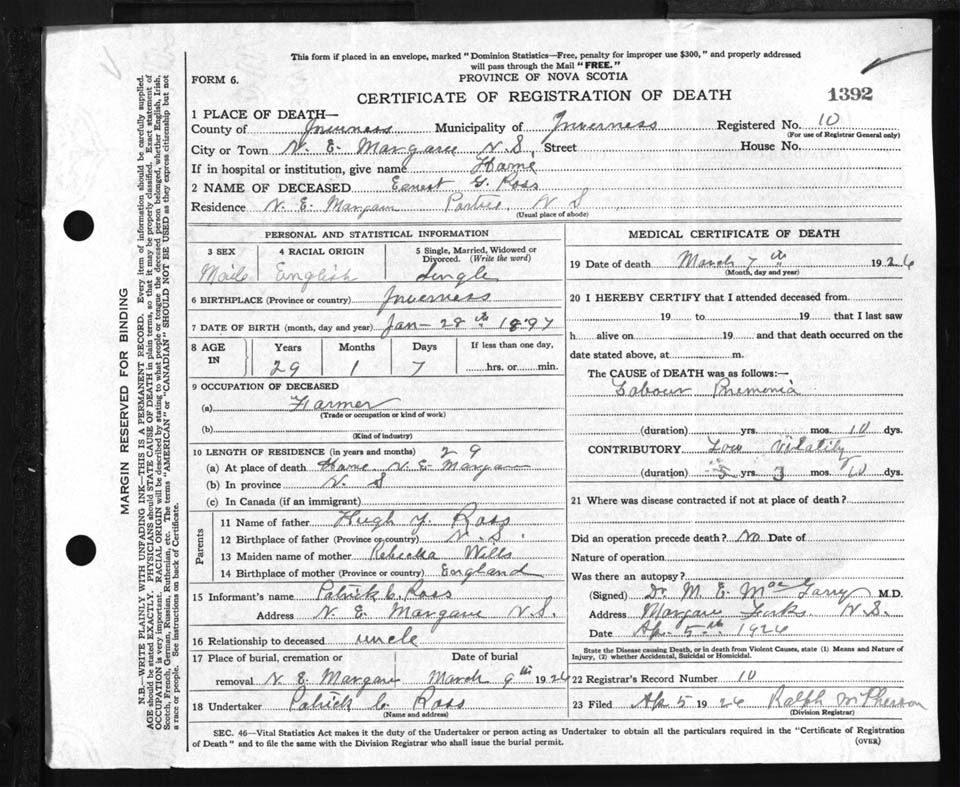 This form if placed in an envelope, marked "Dominion Statistics—Free, penalty for improper use $300," and properly addressed
will pass through the Mail "FREE."
FORM 6.
PROVINCE OF NOVA SCOTIA
CERTIFICATE OF REGISTRATION OF DEATH
1392
1 PLACE OF DEATH—
County of Inverness Municipality of Inverness Registered No. 10
(For use of Registrar General only)
City or Town N. E. Margaree N.S. Street House No.
If in hospital or institution, give name Home
2 NAME OF DECEASED Earnest Y. Ross
Residence N. E. Margaree N S
(Usual place of abode)
PERSONAL AND STATISTICAL INFORMATION
3 SEX 4 RACIAL ORIGIN 5 Single, Married, Widowed or
Divorced. (Write the word)
Male English Single
6 BIRTHPLACE (Province or country) Inverness
7 DATE OF BIRTH (month, day and year) Jan - 28th 1897
8 AGE IN Years Months Days If less than one day,
29 1 7 hrs. or min.
9 OCCUPATION OF DECEASED
(a) Farmer
(Trade or occupation or kind of work)
(b)
(Kind of industry)
10 LENGTH OF RESIDENCE (in years and months) 29
(a) At place of death Home N. E. Margaree
(b) In province N. S
(c) In Canada (if an immigrant)
Parents
11 Name of father Hugh Y. Ross
12 Birthplace of father (Province or country) N. S.
13 Maiden name of mother Rebecka Wills
14 Birthplace of mother (Province or country) England
15 Informant's name Patrick C. Ross
Address N. E. Margaree N.S.
16 Relationship to deceased uncle
17 Place of burial, cremation or Date of burial
removal N. E. Margaree March 9th 1926
18 Undertaker Patrick C. Ross
(Name and address)
MEDICAL CERTIFICATE OF DEATH
19 Date of death March 7th 1926
(Month, day and year)
20 I HEREBY CERTIFY that I attended deceased from
19 to 19 that I last saw
h alive on 19 and that death occurred on the
date stated above, at m.
The CAUSE of DEATH was as follows:—
Labour Pnemonia
(duration) yrs. mos. 10 dys.
CONTRIBUTORY Low Vitality
(duration) yrs. 3 mos. dys.
21 Where was disease contracted if not at place of death?
Did an operation precede death? No Date of
Nature of operation
Was there an autopsy?
(Signed) Dr. M. E. MacGarry M.D.
Address Margaree Forks N.S.
Date Ap. 5th 1926
State the Disease causing Death, or in death from Violent Causes, state (1) Means and Nature of
Injury, (2) whether Accidental, Suicidal or Homicidal.
22 Registrar's Record Number 10
23 Filed Ap 5 1926 Ralph McPherson
(Division Registrar)
SEC. 46—Vital Statistics Act makes it the duty of the Undertaker or person acting as Undertaker to obtain all the particulars required in the "Certificate of Registration
of Death" and to file the same with the Division Registrar who shall issue the burial permit.
(OVER)
MARGIN RESERVED FOR BINDING
N.B.—WRITE PLAINLY WITH UNFADING INK—THIS IS A PERMANENT RECORD. Every item of information should be carefully supplied.
AGE should be stated EXACTLY. PHYSICIANS should STATE CAUSE OF DEATH in plain terms, so that it may be properly classified. Exact statement of
OCCUPATION is very important. RACIAL ORIGIN will be described by stating to what people or tongue the deceased person belonged, whether English, Irish,
Scotch, French, German, Russian, Ruthenian, etc. The terms "AMERICAN" or "CANADIAN" SHOULD NOT BE USED as they express citizenship but not
a race or people. See instructions on back of Certificate.